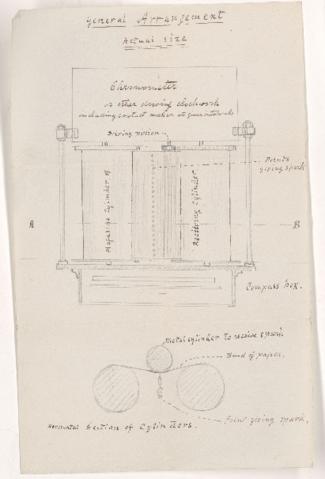 General Arrangement
Actual size
Chronometer
or other driving clockwork
including contact maker at
Driving motion
Points
giving spark
Cylinder of
Receiving Cylinder
A
B
Compass box.
Metal cylinder to receive spark
Band of paper.
Point giving spark.
Horizontal Section of Cylinders.